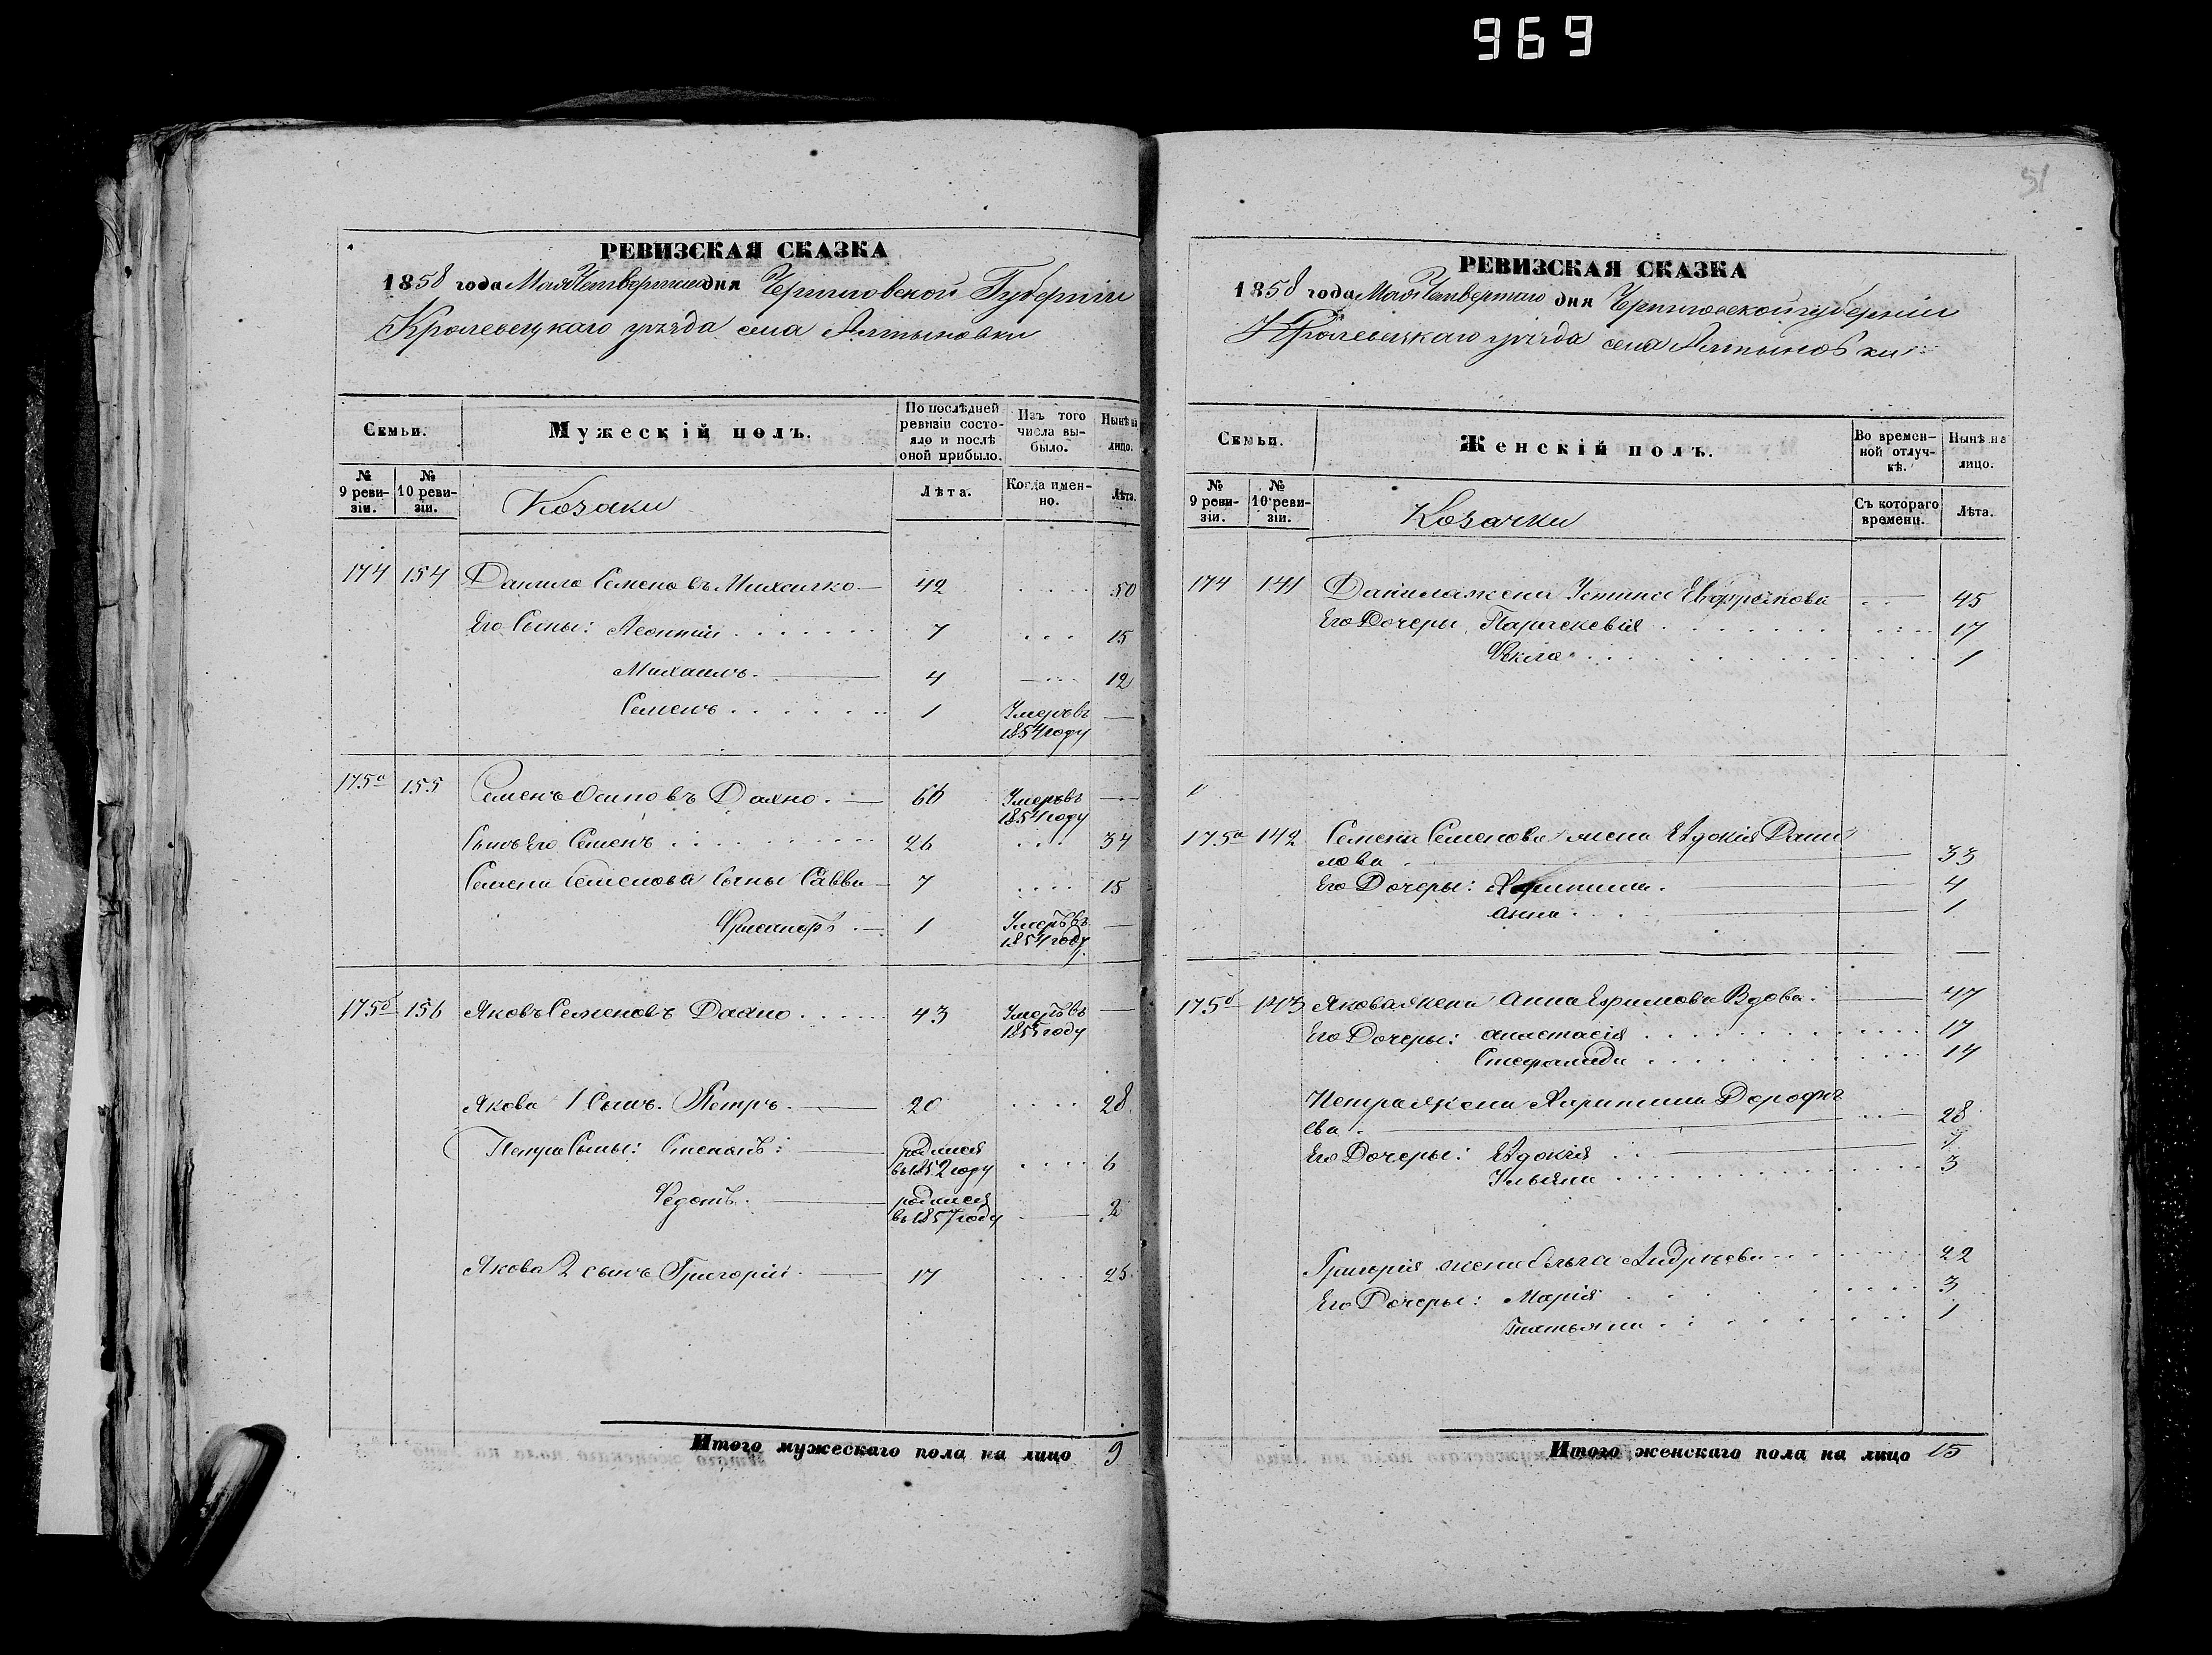 969
51
РЕВИЗСКАЯ СКАЗКА
1858 года Мая Четвертаго дня Черниговской Губерніи
Кролевецкаго уѣзда села Алтыновки
Семьи.
Мужескій полъ.
По послѣдней ревизіи состояло и послѣ оной прибыло.
Изъ того числа выбыло.
Нынѣ на лицо.
№ 9 ревизіи.
№ 10 ревизіи.
Козаки
Лѣта.
Когда именно.
Лѣта.
174 154 Данило Семеновъ Михаилко 42 .... 50
Его Сыны: Леонтій ....... 7 ... 15
Михаилъ. 4 12
Семенъ ....... 1 Умеръ въ
1854 году
175а 155 Семенъ Осиповъ Дахно. 66 Умеръ въ
1854 году
Сынъ Его Семенъ .......... 26 ... 34
Семена Семенова Сыны Савва 7 .... 15
1 Умеръ въ
1854 году
175б 156 Яковъ Семеновъ Дахно ..... 43 Умеръ въ
1855 году
Якова 1 Сынъ. Петръ. 20 .... 28
Петра Сыны: Степанъ: родился
въ 1852 году .... 6
Федотъ. родился
въ 1857 году 2
Якова 2 сынъ Григорій. 17 .... 25
Итого мужескаго пола на лицо 9
РЕВИЗСКАЯ СКАЗКА
1858 года Мая Четвертаго дня Черниговской губерніи
Кролевецкаго уѣзда села Алтыновки
Семьи.
Женскій полъ.
Во временной отлучкѣ.
Нынѣ на лицо.
№ 9 ревизіи.
№ 10 ревизіи.
Козачки
Съ котораго времени.
Лѣта.
174 141 Данила жена Устина 45
Его Дочеры Параскевія 17
Фекла 1
175а 142 Семена Семенова жена Евдокія Дани
лова 33
Его Дочеры: 4
Анна 1
175б 143 Якова жена Анна Ефимова Вдова. 47
Его Дочеры: Анастасія 17
Стефанида 14
Петра жена Харитина Дорофѣ
ева. 28
Его Дочеры: Евдокія 7
Ульяна 3
Григорія жена Ольга Андрѣева 22
Его Дочеры: Марія 3
Татьяна 1
Итого женскаго пола на лицо 15